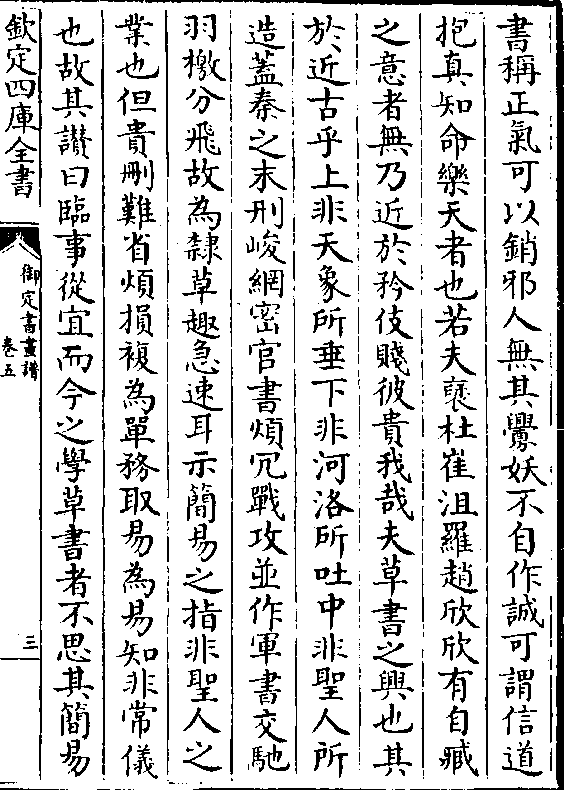 書稱正氣可以銷邪人無其釁妖不自作誠可謂信道
抱真知命樂天者也若夫襃杜崔沮羅趙欣欣有自臧
之意者無乃近於矜伎賤彼貴我哉夫草書之興也其
於近古乎上非天象所垂下非河洛所吐中非聖人所
造蓋秦之末刑峻網宻官書煩冗戰攻並作軍書交馳
羽檄分飛故為隸草趣急速耳示簡易之指非聖人之
業也但貴刪難省煩損複為單務取易為易知非常儀
也故其讃曰臨事從宜而今之學草書者不思其簡易
欽定四庫全書
御定書畫譜
卷五
三